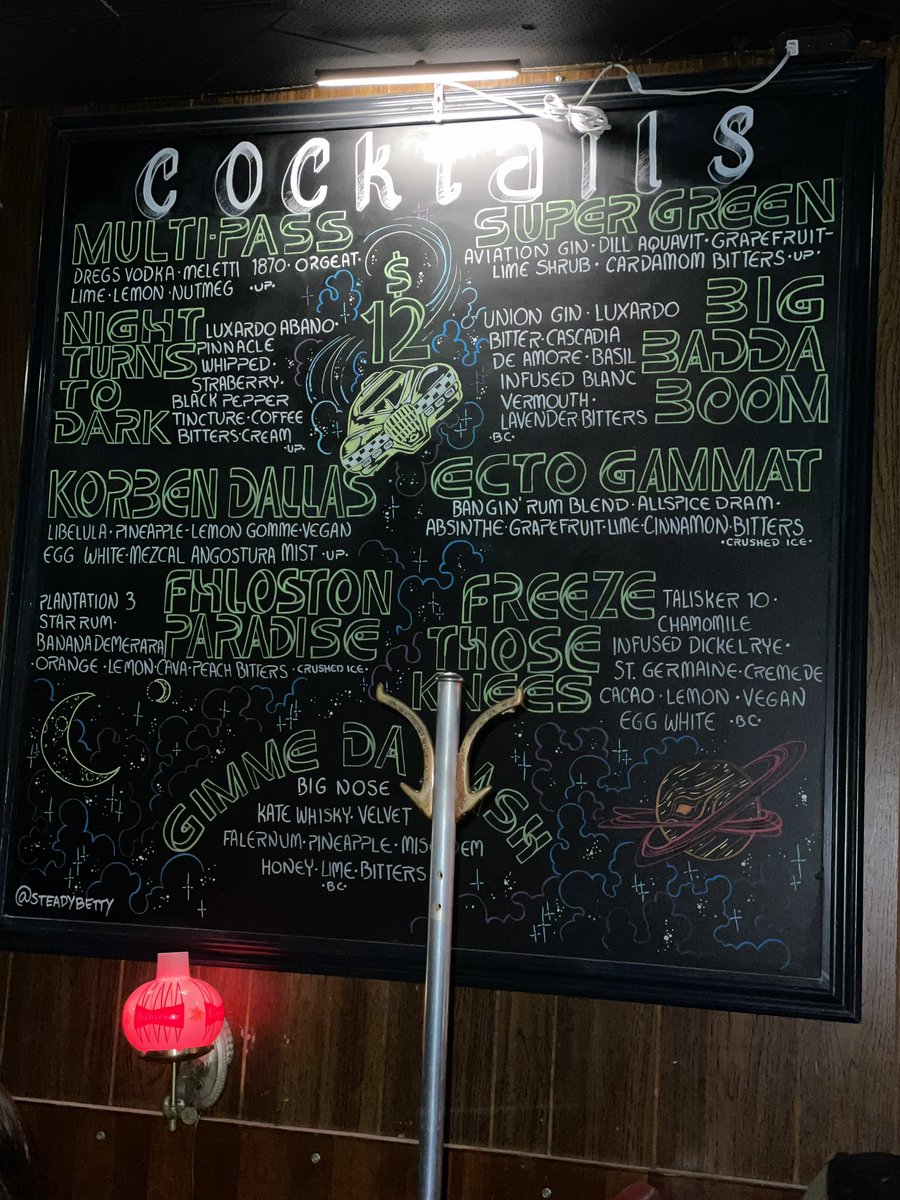 Cocktails
MULTI-PASS
DREGS VODKA · MELETTI 1870 · ORGEAT ·
LIME · LEMON · NUTMEG · UP ·
SUPER GREEN
AVIATION GIN · DILL AQUAVIT · GRAPEFRUIT-
LIME SHRUB · CARDAMOM BITTERS · UP ·
$
12
NIGHT
TURNS
TO
DARK
LUXARDO ABANO ·
PINNACLE
WHIPPED ·
STRABERRY ·
BLACK PEPPER
TINCTURE · COFFEE
BITTERS · CREAM
· UP ·
BIG
BADDA
BOOM
UNION GIN · LUXARDO
BITTER · CASCADIA
DE AMORE · BASIL
INFUSED BLANC
VERMOUTH ·
LAVENDER BITTERS
· BC ·
KORBEN DALLAS
LIBELULA · PINEAPPLE · LEMON GOMME · VEGAN
EGG WHITE · MEZCAL ANGOSTURA MIST · UP ·
ECTO GAMMAT
BANGIN' RUM BLEND · ALLSPICE DRAM ·
ABSINTHE · GRAPEFRUIT · LIME · CINNAMON · BITTERS
· CRUSHED ICE ·
FHLOSTON
PARADISE
PLANTATION 3
STAR RUM ·
BANANA DEMERARA
· ORANGE · LEMON · CAVA · PEACH BITTERS · CRUSHED ICE ·
FREEZE
THOSE
KNEES
TALISKER 10 ·
CHAMOMILE
INFUSED DICKEL RYE ·
ST. GERMAINE · CREME DE
CACAO · LEMON · VEGAN
EGG WHITE · BC ·
GIMME DA
BIG NOSE
KATE WHISKY · VELVET
FALERNUM · PINEAPPLE ·
HONEY · LIME · BITTERS
· BC ·
@STEADYBETTY
Budweiser